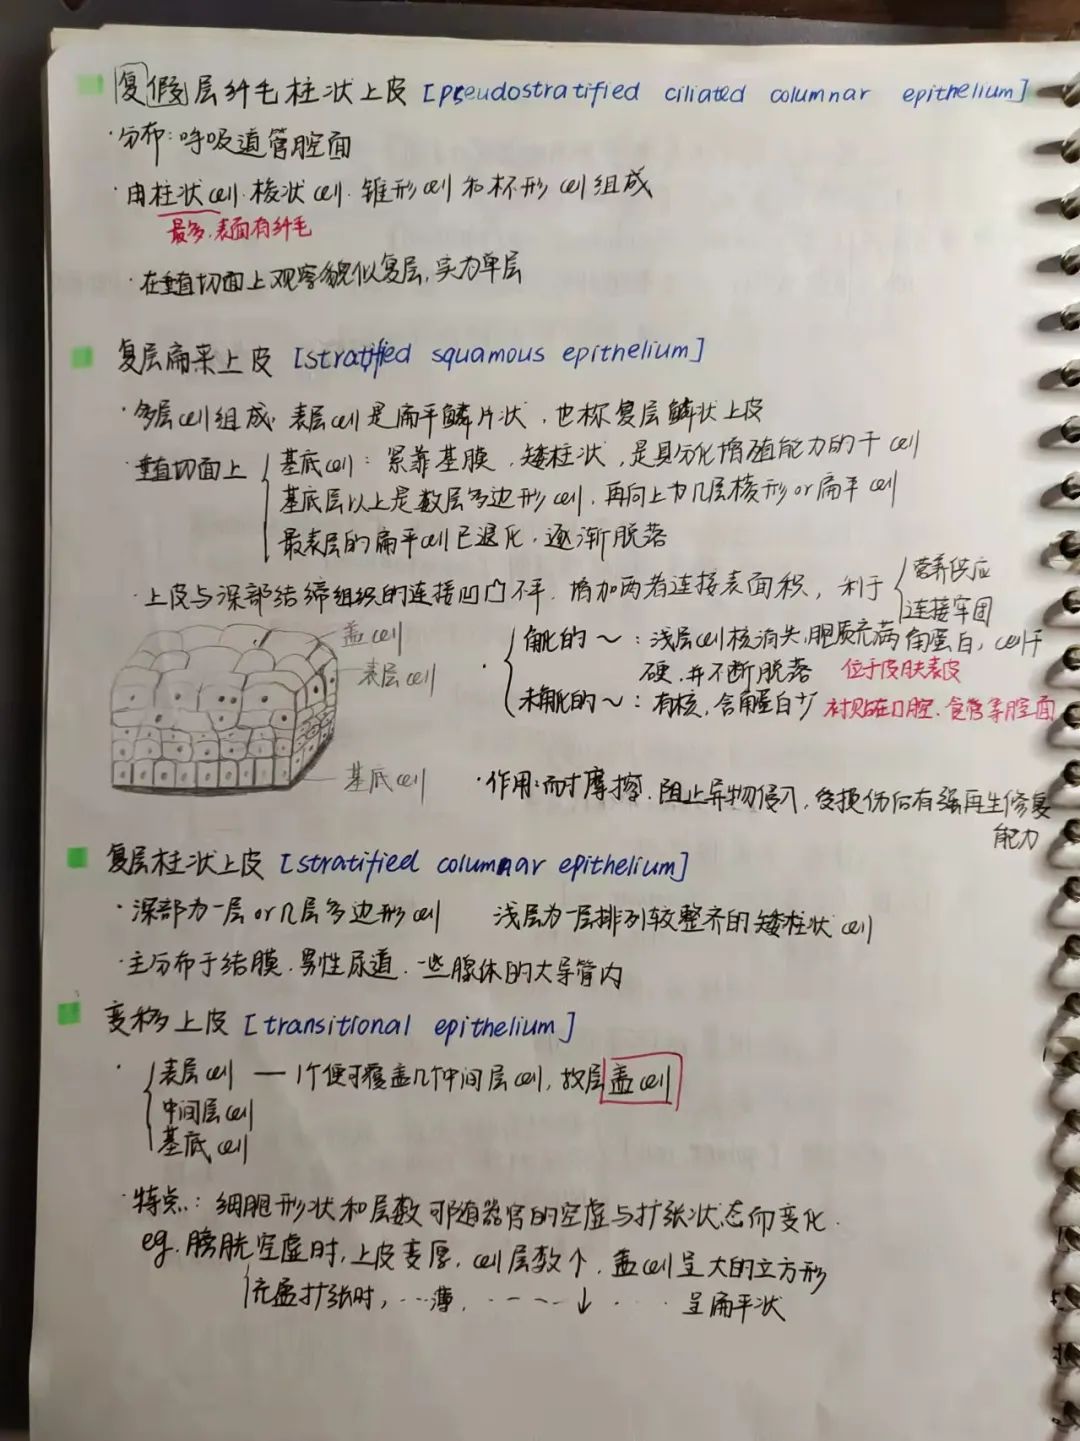 复假层纤毛柱状上皮 [pseudostratified ciliated columnar epithelium]
·分布:呼吸道管腔面
·由柱状cell.梭状cell.锥形cell和杯形cell组成
最多.表面有纤毛
·在垂直切面上观察貌似复层,实为单层
复层扁平上皮 [stratified squamous epithelium]
·多层cell组成.表层cell是扁平鳞片状,也称复层鳞状上皮
·垂直切面上 基底cell:紧靠基膜,矮柱状,是具分化增殖能力的干cell
基底层以上是数层多边形cell,再向上为几层梭形or扁平cell
最表层的扁平cell已退化,逐渐脱落
·上皮与深部结缔组织的连接凹凸不平,增加两者连接表面积,利于 营养供应
连接牢固
盖cell
表层cell
基底cell
· 角化的~:浅层cell核消失,胞质充满角蛋白,cell干
硬,并不断脱落 位于皮肤表皮
未角化的~:有核,含角蛋白少 衬贴在口腔.食管等腔面
·作用:耐摩擦.阻止异物侵入,受损伤后有强再生修复
能力
复层柱状上皮 [stratified columnar epithelium]
·深部为一层or几层多边形cell 浅层为一层排列较整齐的矮柱状cell
·主分布于结膜.男性尿道.一些腺体的大导管内
变移上皮 [transitional epithelium]
· 表层cell — 1个便可覆盖几个中间层cell,故层盖cell
中间层cell
基底cell
·特点:细胞形状和层数可随器官的空虚与扩张状态而变化.
eg.膀胱空虚时,上皮变厚,cell层数个.盖cell呈大的立方形
充盈扩张时,...薄,....↓....呈扁平状